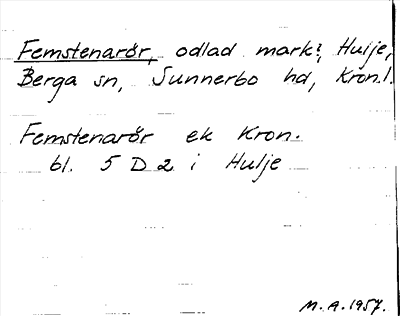 Femstenarör, odlad mark?, Hulje,
Berga sn, Sunnerbo hd, Kron.l.
Femstenarör ek Kron.
bl. 5 D 2 i Hulje
M.A.1957.